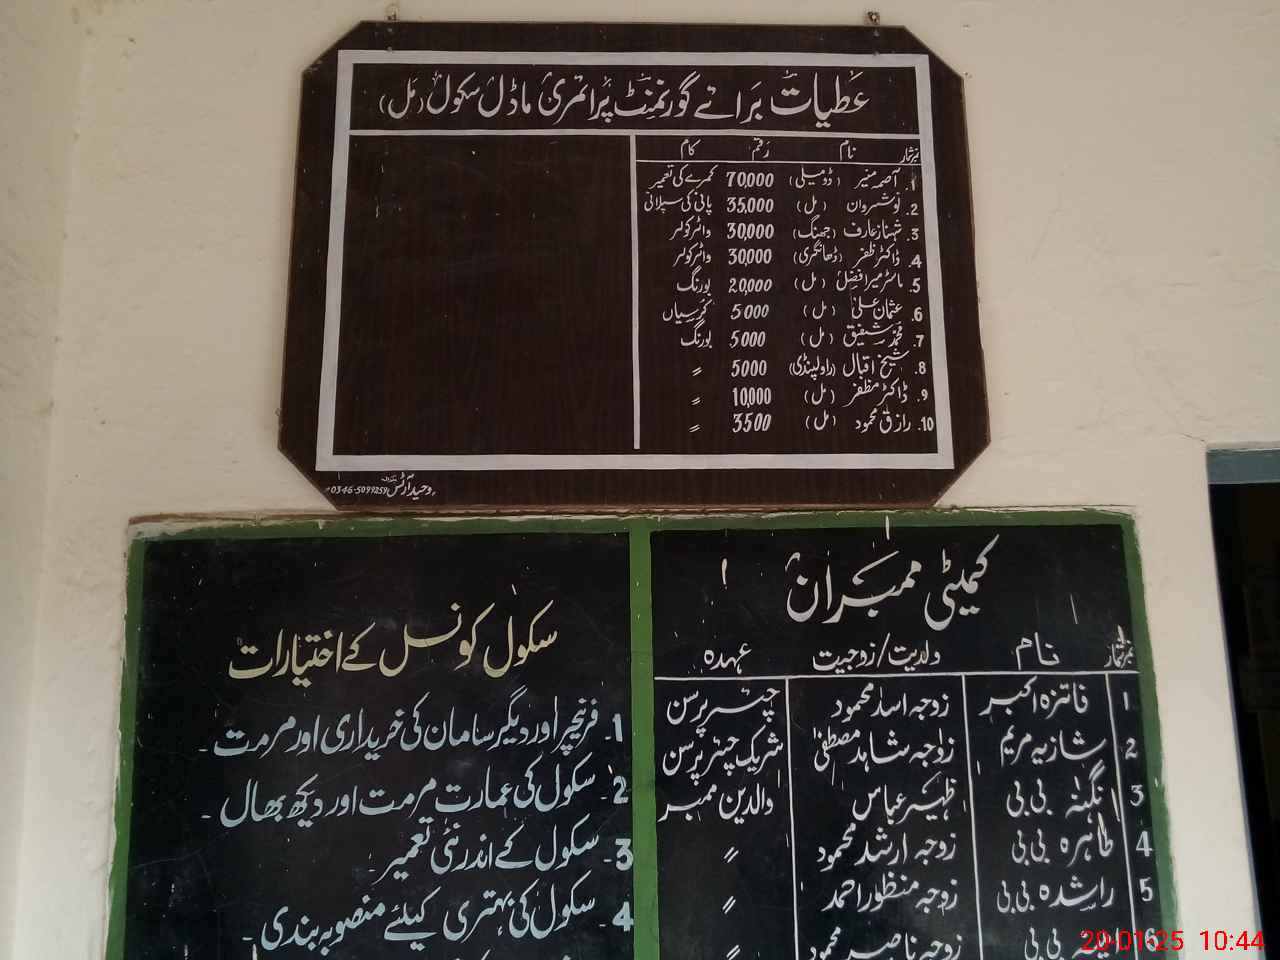 عطیات برائے گورنمنٹ پرائمری ماڈل سکول (مَل)
نمبر شمار نام رقم کام
1. آصمہ منیر (ڈومیلی) 70,000 کمرے کی تعمیر
2. نوشیروان (مل) 35,000 پانی کی سپلائی
3. شہناز عارف (جھنگ) 30,000 واٹر کولر
4. ڈاکٹر ظفر 30,000 واٹر کولر
5. ماسٹر میر افضل (مل) 20,000 بورنگ
6. عثمان علی (مل) 5000 کرسیاں
7. محمد شفیق (مل) 5000 بورنگ
8. شیخ اقبال (راولپنڈی) 5000 〃
9. ڈاکٹر مظفر (مل) 10,000 〃
10. رازق محمود (مل) 3500 〃
وحید آرٹس 0346-5099259
کمیٹی ممبران
نمبر شمار نام ولدیت/زوجیت عہدہ
1 فائزہ اکبر زوجہ اسد محمود چئیر پرسن
2 شازیہ مریم زوجہ شاہد مصطفیٰ شریک چئیر پرسن
3 نگینہ بی بی ظہیر عباس والدین ممبر
4 طاہرہ بی بی زوجہ ارشد محمود 〃
5 راشدہ بی بی زوجہ منظور احمد 〃
6 امینہ بی بی زوجہ ناصر محمود 〃
سکول کونسل کے اختیارات
1. فرنیچر اور دیگر سامان کی خریداری اور مرمت -
2- سکول کی عمارت مرمت اور دیکھ بھال -
3- سکول کے اندر نئی تعمیر -
4- سکول کی بہتری کیلئے منصوبہ بندی -
20-01-25 10:44